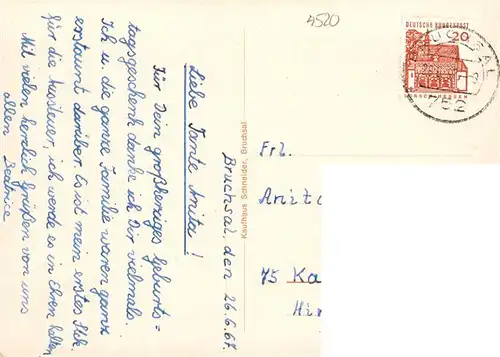 4520
DEUTSCHE BUNDESPOST
20
BRUCHSAL
752
Bruchsal, den 26.6.67.
Liebe Tante Anita!
Für Dein großherziges Geburts=
tagsgeschenk danke ich Dir vielmals.
Ich u. die ganze Familie waren ganz
erstaunt darüber. Es ist mein erstes Stck.
für die Aussteuer, ich werde es in Ehren halten.
Mit vielen herzlich Grüßen von uns
allen
Beatrice
Kaufhaus Schneider, Bruchsal
Frl.
Anita
75 Ka
Hir